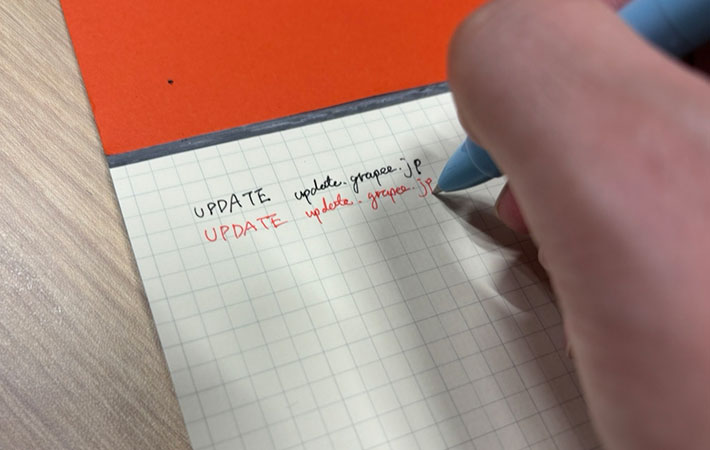 UPDATE update.grapee.jp
UPDATE update.grapee.jp